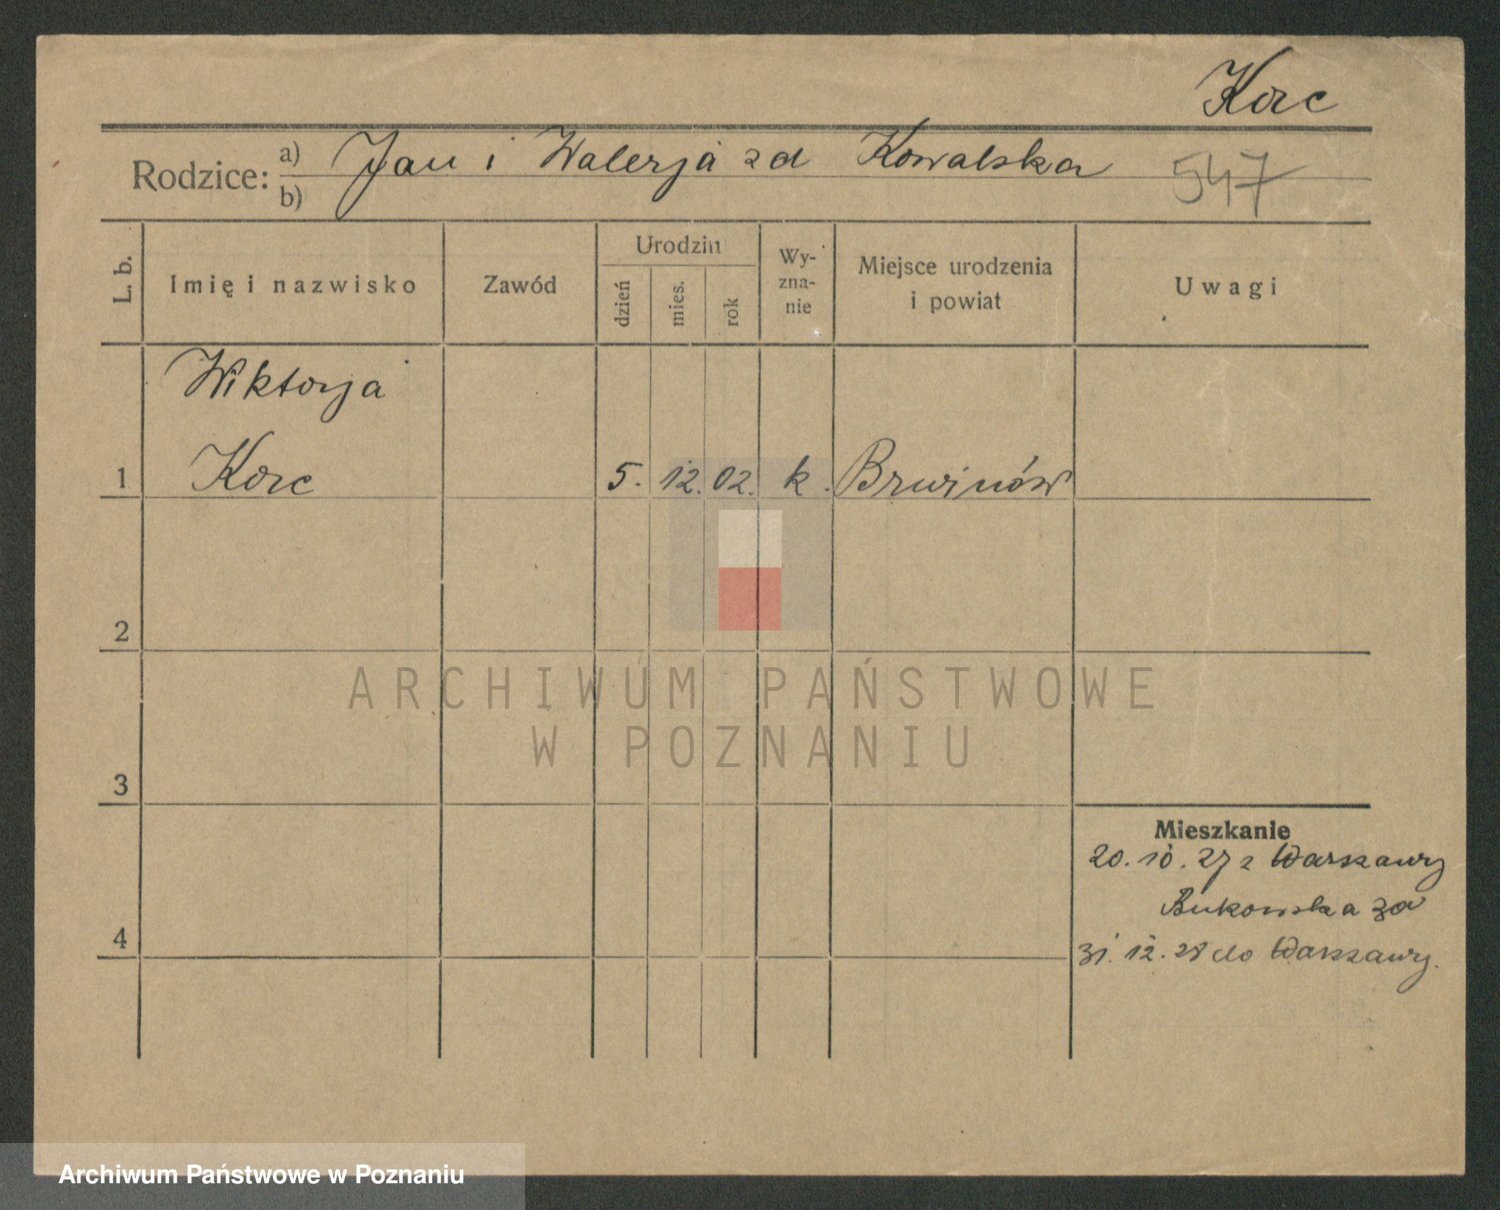 Korc
Rodzice: a) Jan i Walerja zd Kowalska
b)
547
L. b.
Imię i nazwisko
Zawód
Urodzin
dzień
mies.
rok
Wy-
zna-
nie
Miejsce urodzenia
i powiat
Uwagi
Wiktorja
1 Korc 5. 12. 02. k. Brwinów
2
3
4
Mieszkanie
20. 10. 27 z Warszawy
Bukowska
31. 12. 28 do Warszawy.
ARCHIWUM PAŃSTWOWE
W POZNANIU
Archiwum Państwowe w Poznaniu